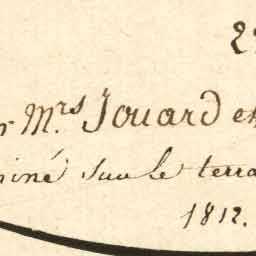 Mrs Jouard et
sur le terra
1812.